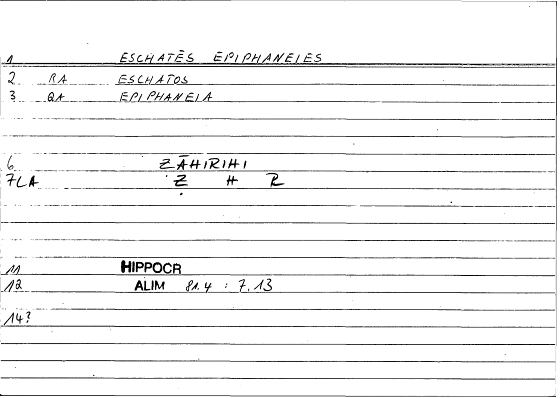 1 ESCHATĒS EPIPHANEIES
2 RA ESCHATOS
3 QA EPIPHANEIA
6 ẒĀHIRIHI
7LA Ẓ H R
11 HIPPOCR
12 ALIM 81.4 : 7.13
14?